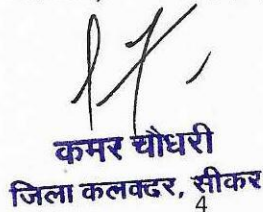 कमर चौधरी
जिला कलक्टर, सीकर
4